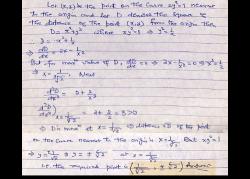 Let (x,y) be the point on the curve xy²=1 nearest
to the origin and let D denotes the square of
the distance of the point (x,y) from the origin then
D = x²+y² where xy²=1 ⇒ y²=1/x
D = x²+1/x
⇒ dD/dx = 2x - 1/x²
But for max value of D, dD/dx = 0 ⇒ 2x - 1/x² = 0
⇒ x = 1/∛2. Now
d²D/dx² = 2 + 2/x³
⇒ d²D/dx² = 2 + 2/½ = 6 > 0
⇒ D is min at x = 1/∛2 ⇒ distance of the point
on the curve nearest to the origin is x = 1/∛2. But xy²=1
at x = 1/∛2
the required point is